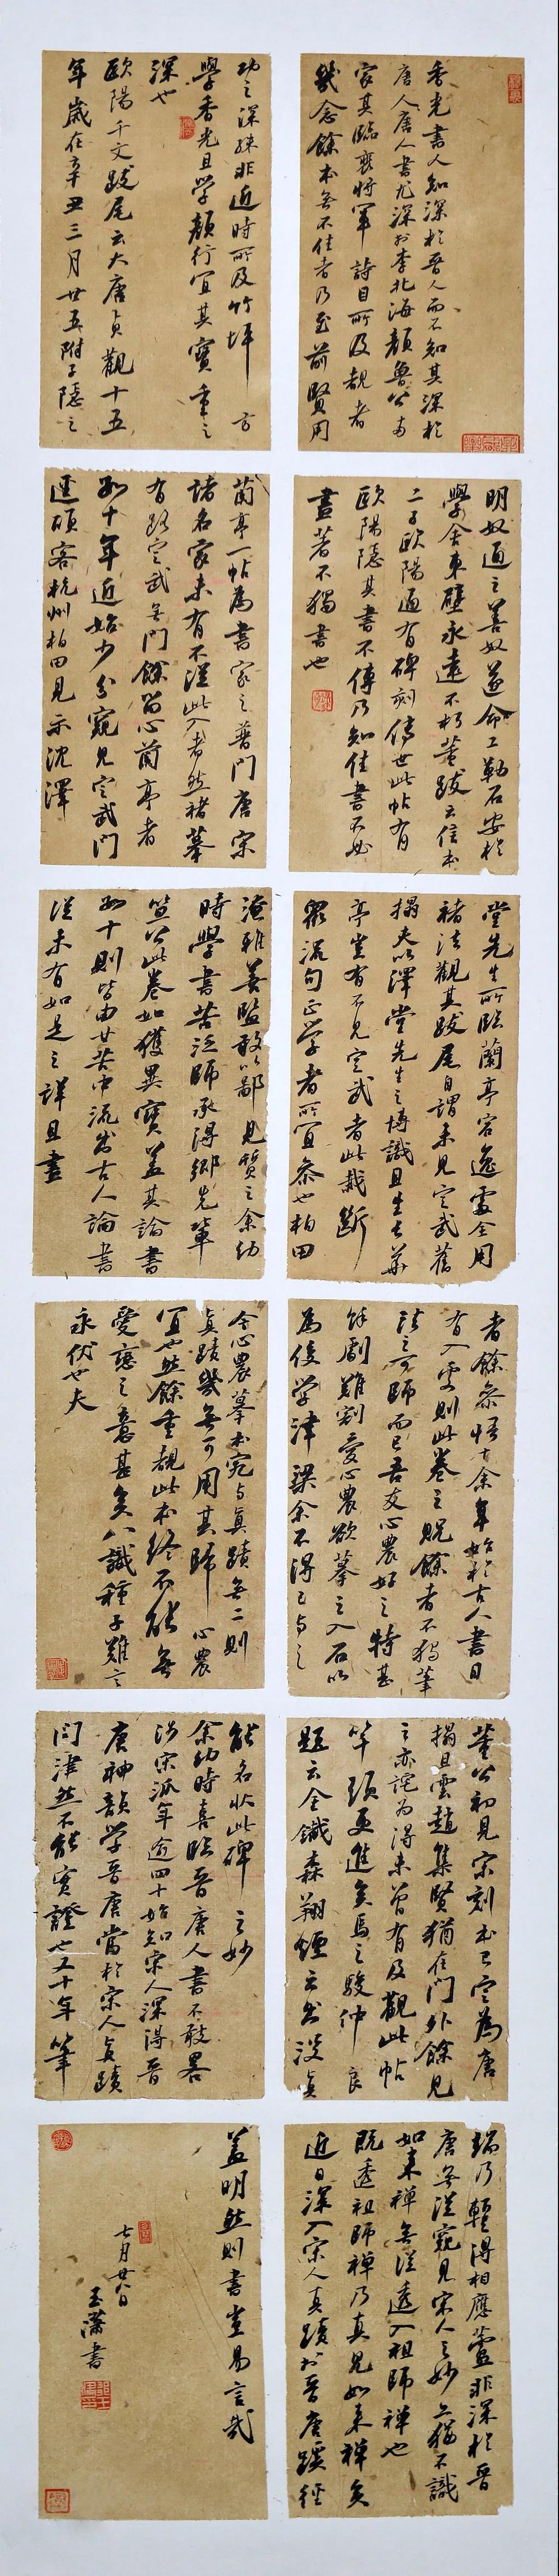 香光書人知深於晉人而不知其深於
唐人唐人書尤深於李北海顏魯公兩
家其臨裴將軍詩目所及覩者
幾念餘本無不佳者乃至前賢用
功之深殊非近時所及竹坪方
學香光且學顏行宜其寶重之
深也
歐陽千文跋尾云大唐貞觀十五
年歲在辛丑三月廿五附子隱之
明奴通之善奴遂命工勒石安於
學舍東壁永遠不朽董跋云信本
二子歐陽通有碑刻傳世此帖有
歐陽隱其書不傳乃知佳書不必
盡著不獨書也
蘭亭一帖為書家之普門唐宋
諸名家未有不從此入者然褚摹
有跋定武無門餘留心蘭亭者
卅十年近始少分窺見定武門
逕頃客杭州柏田見示沈澤
堂先生所臨蘭亭容逸處全用
褚法觀其跋尾自謂未見定武舊
搨夫以澤堂先生之博識且生長華
亭尝有不見定武者此裁斷
眾流句正學者所宜參也柏田
淹雅善鑒敢以鄙見質之余幼
時學書苦泛師承得鄉先輩
笪公此卷如獲異寶蓋其論書
卅十則皆由甘苦中流出古人論書
從未有如是之詳且盡
者餘參悟十余年始於古人書目
有入處則此卷之貺餘者不獨筆
法之可師而已吾友心農好之特甚
餘劇難割愛心農欲摹之入石以
為後學津梁余不得已與之
今心農摹本宛與真蹟無二則
真蹟幾無可用其歸心農
宜也然餘重覩此本終不能無
愛戀之意甚矣八識種子難言
永伏也夫
董公初見宋刻本已定為唐
搨且雲趙集賢猶在門外餘見
之亦詫為得未曾有及觀此帖
竿頭更進矣馬之駿仲良
題云金鐵森翔煙云出沒真
能名狀此碑之妙
余幼時喜臨晉唐人書不敢畧
涉宋派年逾四十始知宋人深得晉
唐神韻學晉唐當於宋人真蹟
問津然不能實證也又十年筆
端乃輒得相應蓋非深於晉
唐無從窺見宋人之妙亦猶不識
如來禪無從透入祖師禪也
既透祖師禪乃真見如來禪矣
近日深入宋人真蹟於晉唐蹊徑
益明然則書豈易言哉
七月廿八日
玉瀟書